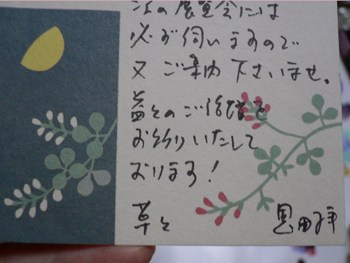 次の展覧会には
必ず伺いますので
又ご案内下さいませ。
益々のご活躍を
お祈りいたして
おります!
草々